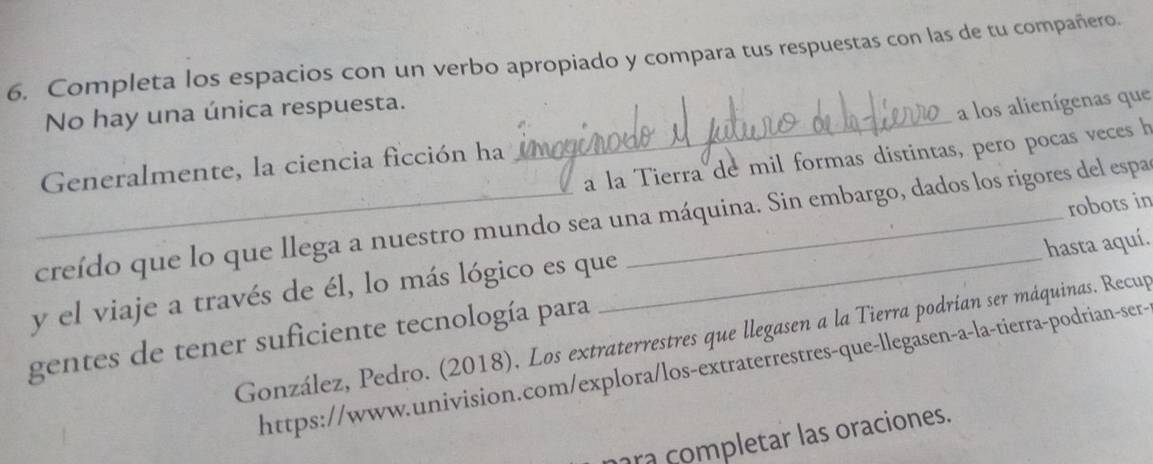 6. Completa los espacios con un verbo apropiado y compara tus respuestas con las de tu compañero.
No hay una única respuesta.
Generalmente, la ciencia ficción ha imaginado el futuro de la tierra a los alienígenas que
a la Tierra de mil formas distintas, pero pocas veces h
creído que lo que llega a nuestro mundo sea una máquina. Sin embargo, dados los rigores del espac
y el viaje a través de él, lo más lógico es que robots in
gentes de tener suficiente tecnología para hasta aquí.
González, Pedro. (2018). Los extraterrestres que llegasen a la Tierra podrían ser máquinas. Recup
https://www.univision.com/explora/los-extraterrestres-que-llegasen-a-la-tierra-podrian-ser-
para completar las oraciones.